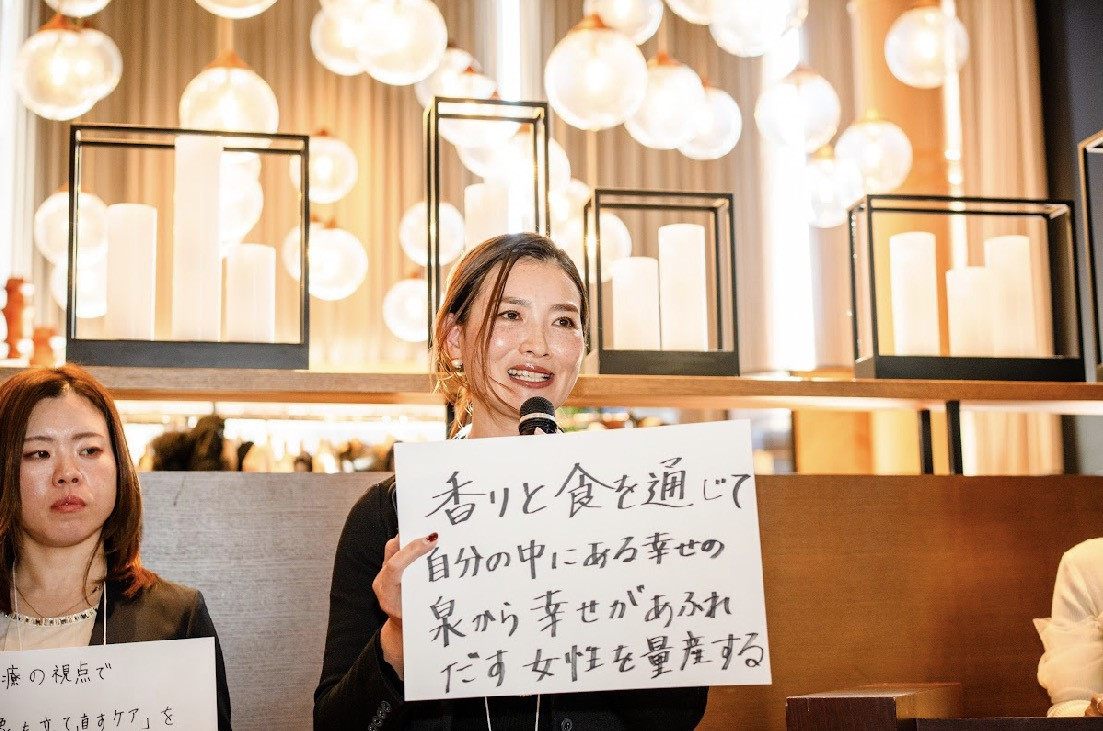 香りと食を通じて
自分の中にある幸せの
泉から幸せがあふれ
だす女性を量産する
療の視点で
を立て直すケア」を